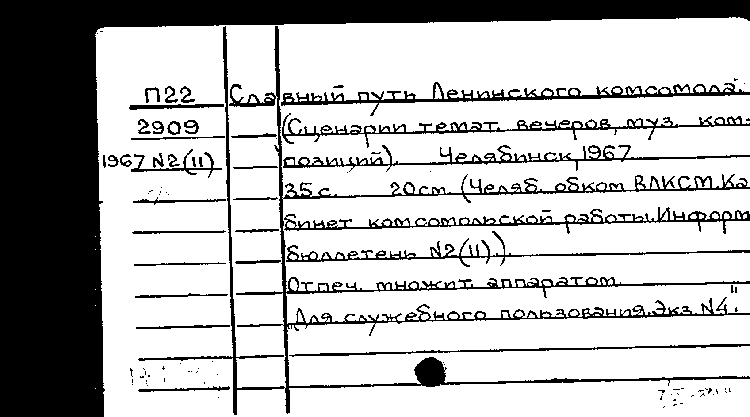 П22 Славный путь Ленинского комсомола.
2909 (Сценарии темат. вечеров, муз. ком-
1967 N2(11) позиций). Челябинск, 1967
35 с. 20 см. (Челяб. обком ВЛКСМ. Ка
бинет комсомольской работы. Информ
бюллетень N2(11).).
Отпеч. множит. аппаратом
"Для служебного пользования. Экз. N4".